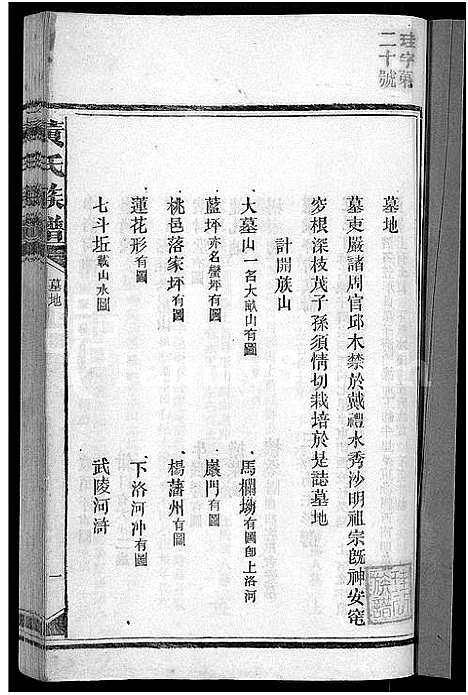 珪字第
二十號
墓地
墓吏嚴諸周官邱木禁於戴禮水秀沙明祖宗既神安窀
穸根深枝茂子孫須情切栽培於是誌墓地
計開族山
大墓山一名大畝山有圖
馬欄坳有圖卽上洛河
藍坪亦名蠻坪有圖
巖門有圖
桃邑落家坪有圖
楊藩州有圖
蓮花形有圖
下洛河冲有圖
七斗坵載山水圖
武陵河滸
黃氏族譜
墓地
一
族譜